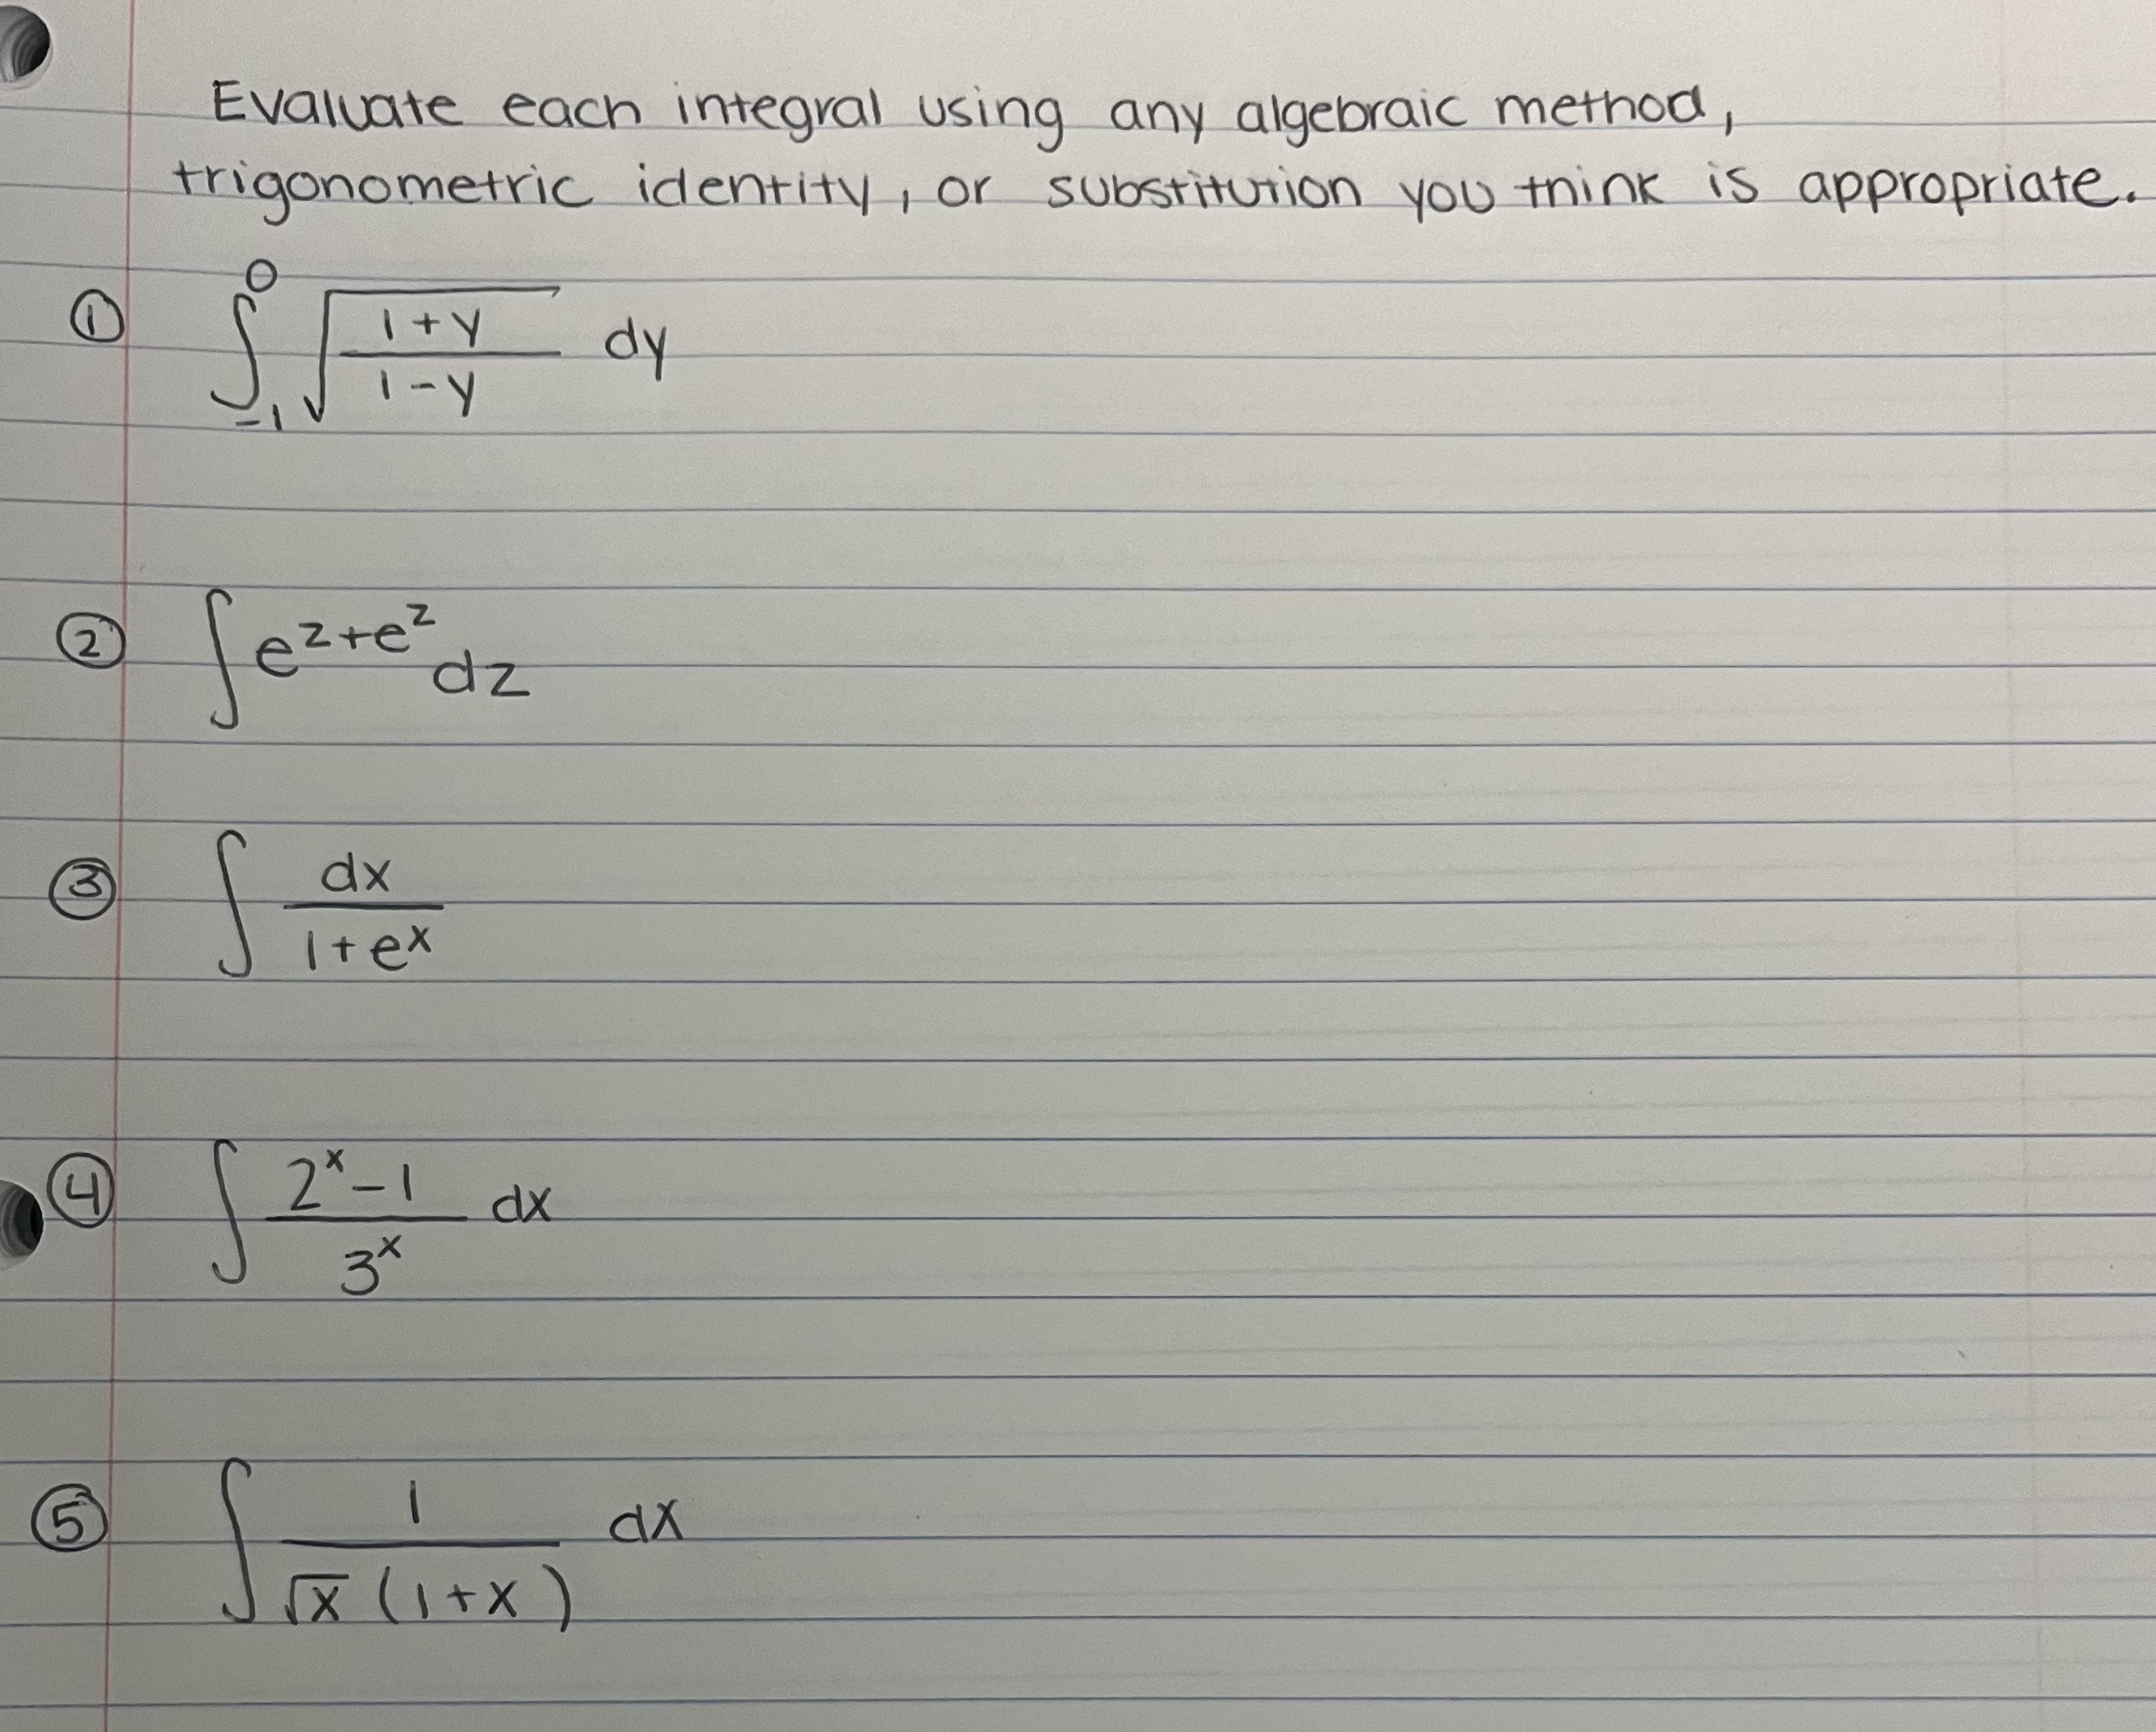 Evaluate each integral using any algebraic method,
trigonometric identity, or substitution you think is appropriate.
① ∫₋₁⁰ √((1+y)/(1-y)) dy
② ∫ e^(z+e^z) dz
③ ∫ dx/(1+e^x)
④ ∫ (2^x-1)/3^x dx
⑤ ∫ 1/(√x (1+x)) dx